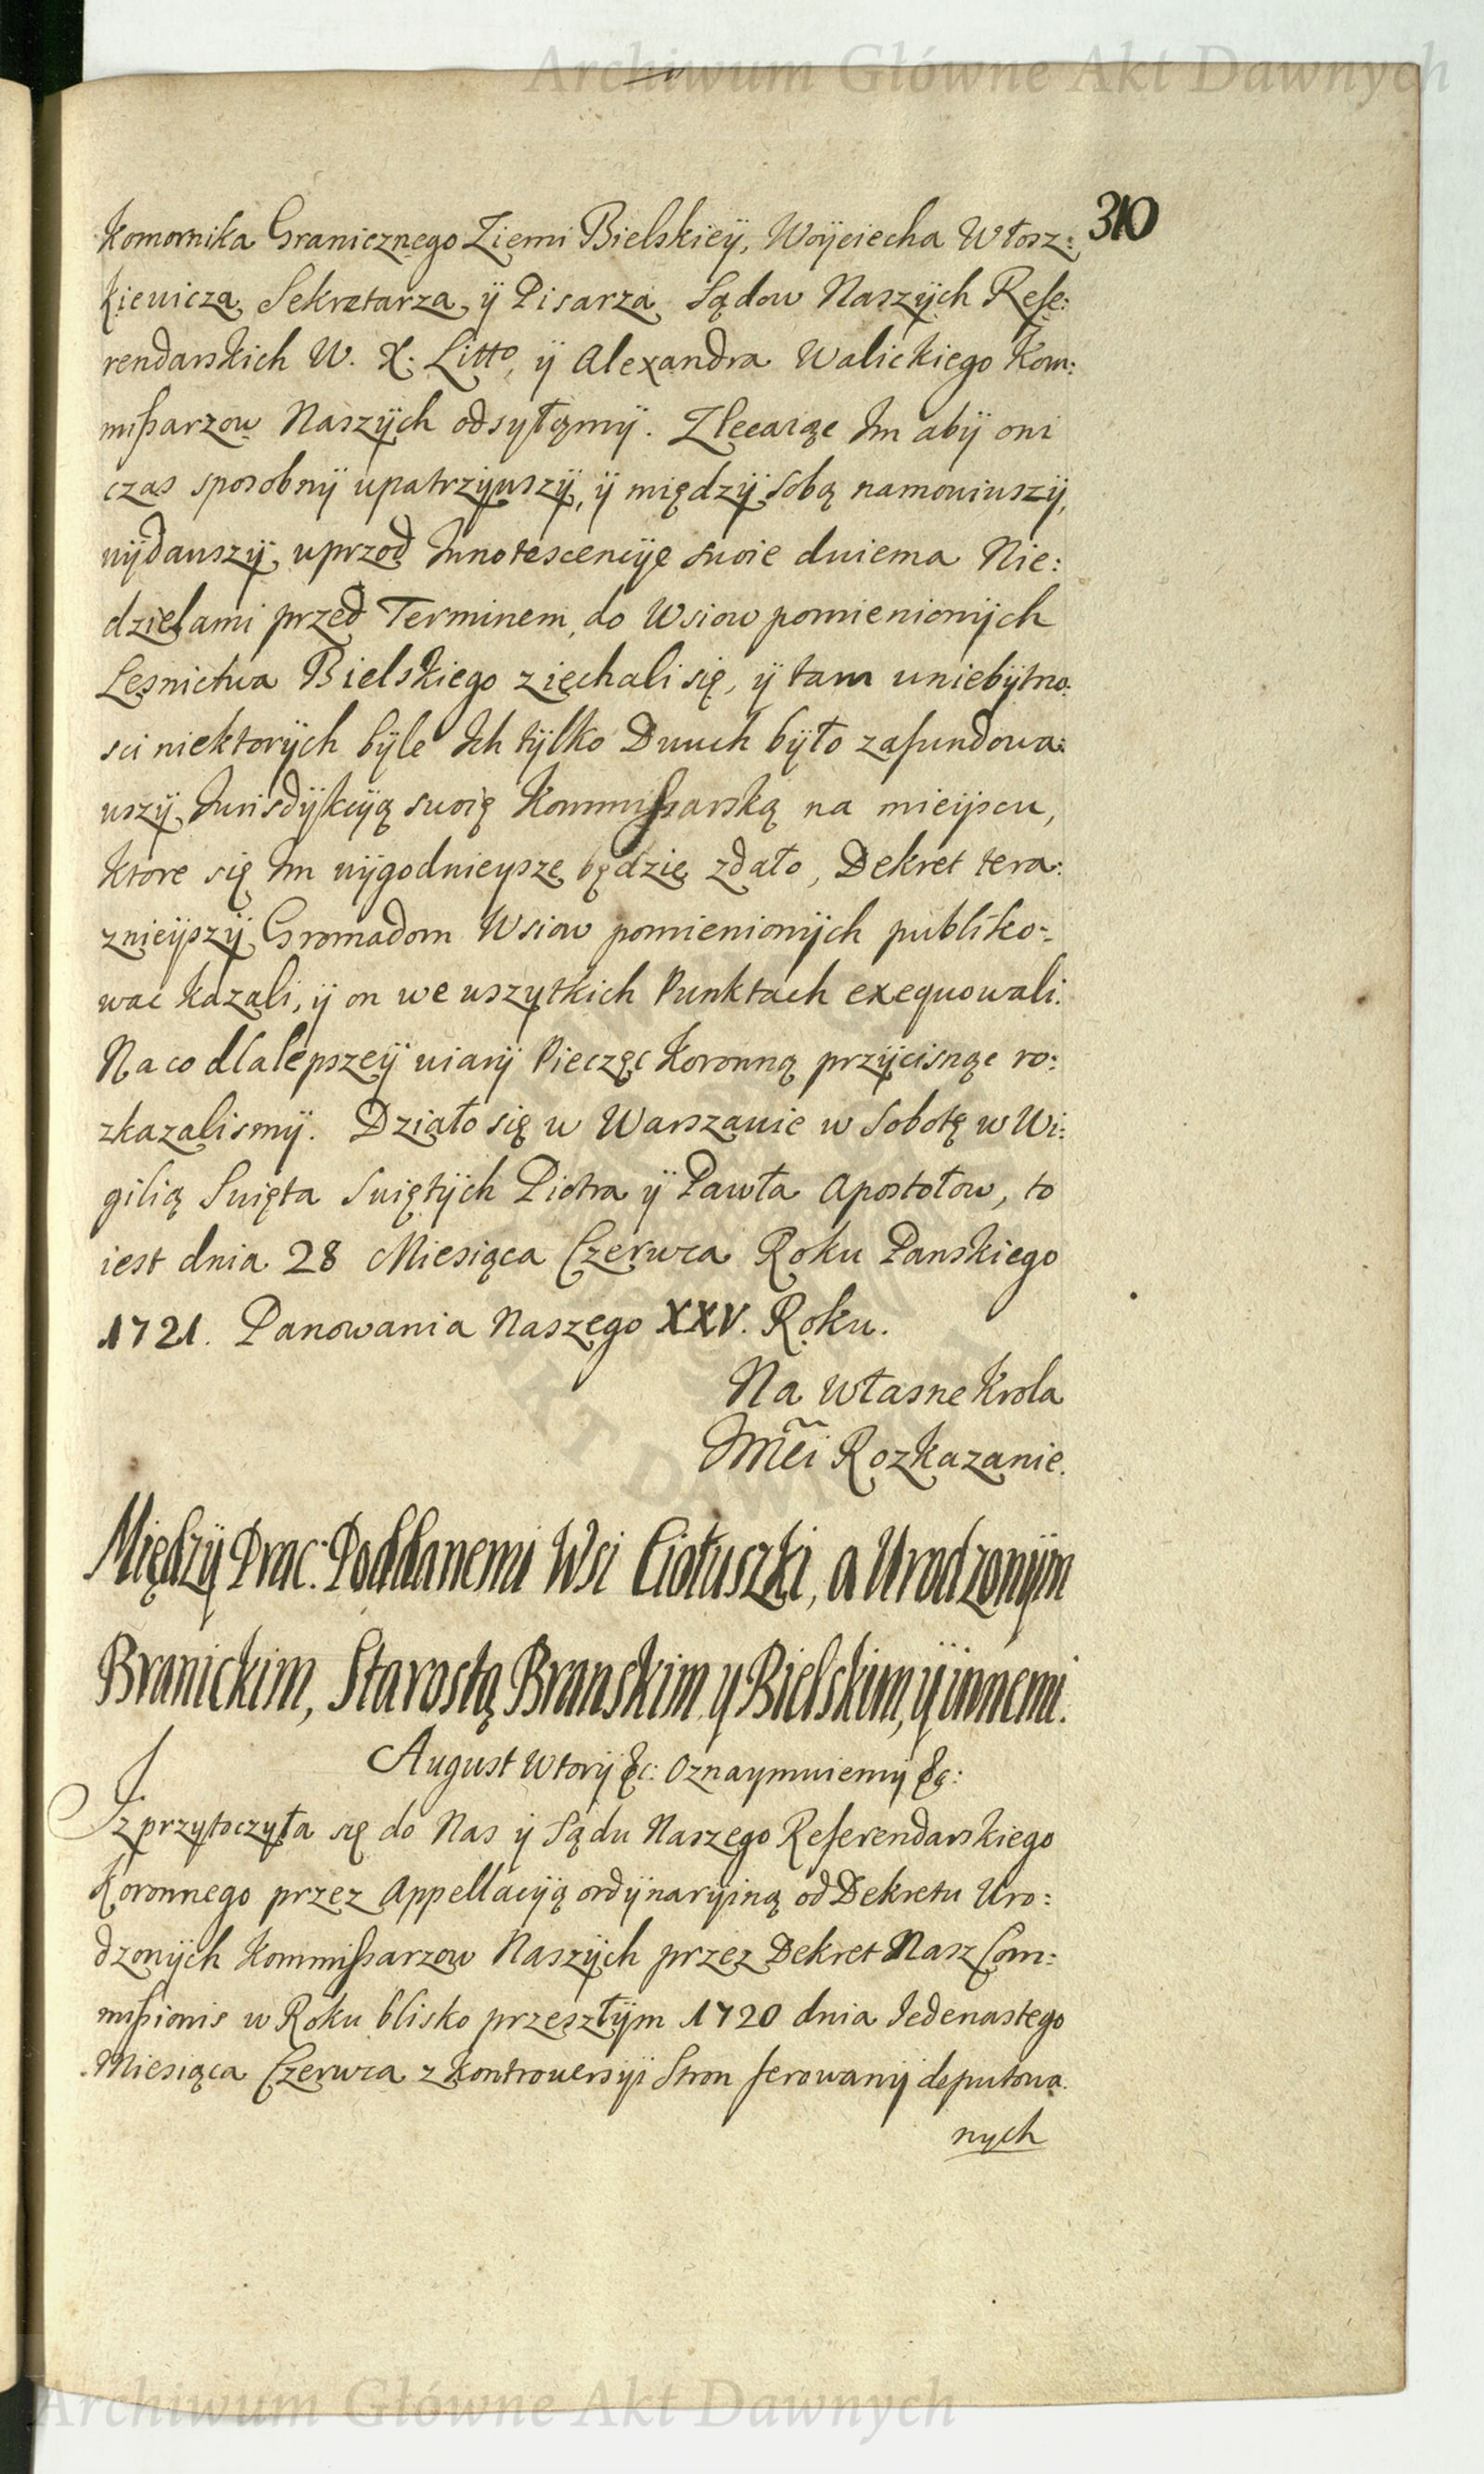 Archiwum Główne Akt Dawnych
310
Komornika Granicznego Ziemi Bielskieÿ, Woÿciecha Włosz:
kiewicza Sekretarza ÿ Pisarza Sądow Naszÿch Refe:
rendarskich W. X: Litto, ÿ Alexandra Walickiego Kom:
mißarzow Naszÿch odsyłamÿ. Zlecaiąc Im abÿ oni
czas sposobnÿ upatrzÿwszÿ, ÿ międzÿ sobą namowiwszÿ,
wÿdawszÿ wprzod Innotescencÿe swoie dwiema Nie:
dzielami przed Terminem, do Wsiow pomienionÿch
Lesnictwa Bielskiego ziechali się, ÿ tam wniebÿtno:
sci niektorÿch bÿle Ich tÿlko Dwuch bÿło zafundowa:
wszÿ Jurisdÿkcÿą swoię Kommißarską na mieÿscu,
ktore się Im wÿgodnieysze będzie zdało, Dekret tera:
znieÿszÿ Gromadom Wsiow pomienionÿch publiko-
wac kazali, ÿ on we wszytkich Punktach exequowali.
Na co dla lepszeÿ wiarÿ Pieczęc Koronną przÿcisnąc ro:
zkazalismÿ. Działo się w Warszawie w Sobotę w Wi:
gilią Swięta Swiętÿch Piotra ÿ Pawła Apostołow, to
iest dnia 28 Miesiąca Czerwca Roku Panskiego
1721. Panowania Naszego XXV. Roku.
Na własne Krola
JMci Rozkazanie.
Międzÿ Prac: Poddanemi Wsi Ciołuszki, a Urodzonÿm
Branickim, Starostą Branskim y Bielskim, ÿ innemi.
August Wtorÿ &c: Oznaymuiemÿ &c:
Iz przytoczyła się do Nas ÿ Sądu Naszego Referendarskiego
Koronnego przez Appellacÿą ordÿnarÿiną od Dekretu Uro:
dzonÿch Kommißarzow Naszÿch przez Dekret Nasz Com:
mißionis w Roku blisko przeszłÿm 1720 dnia Jedenastego
Miesiąca Czerwca z Kontrowersÿi Stron ferowanÿ deputowa
nych
Archiwum Główne Akt Dawnych